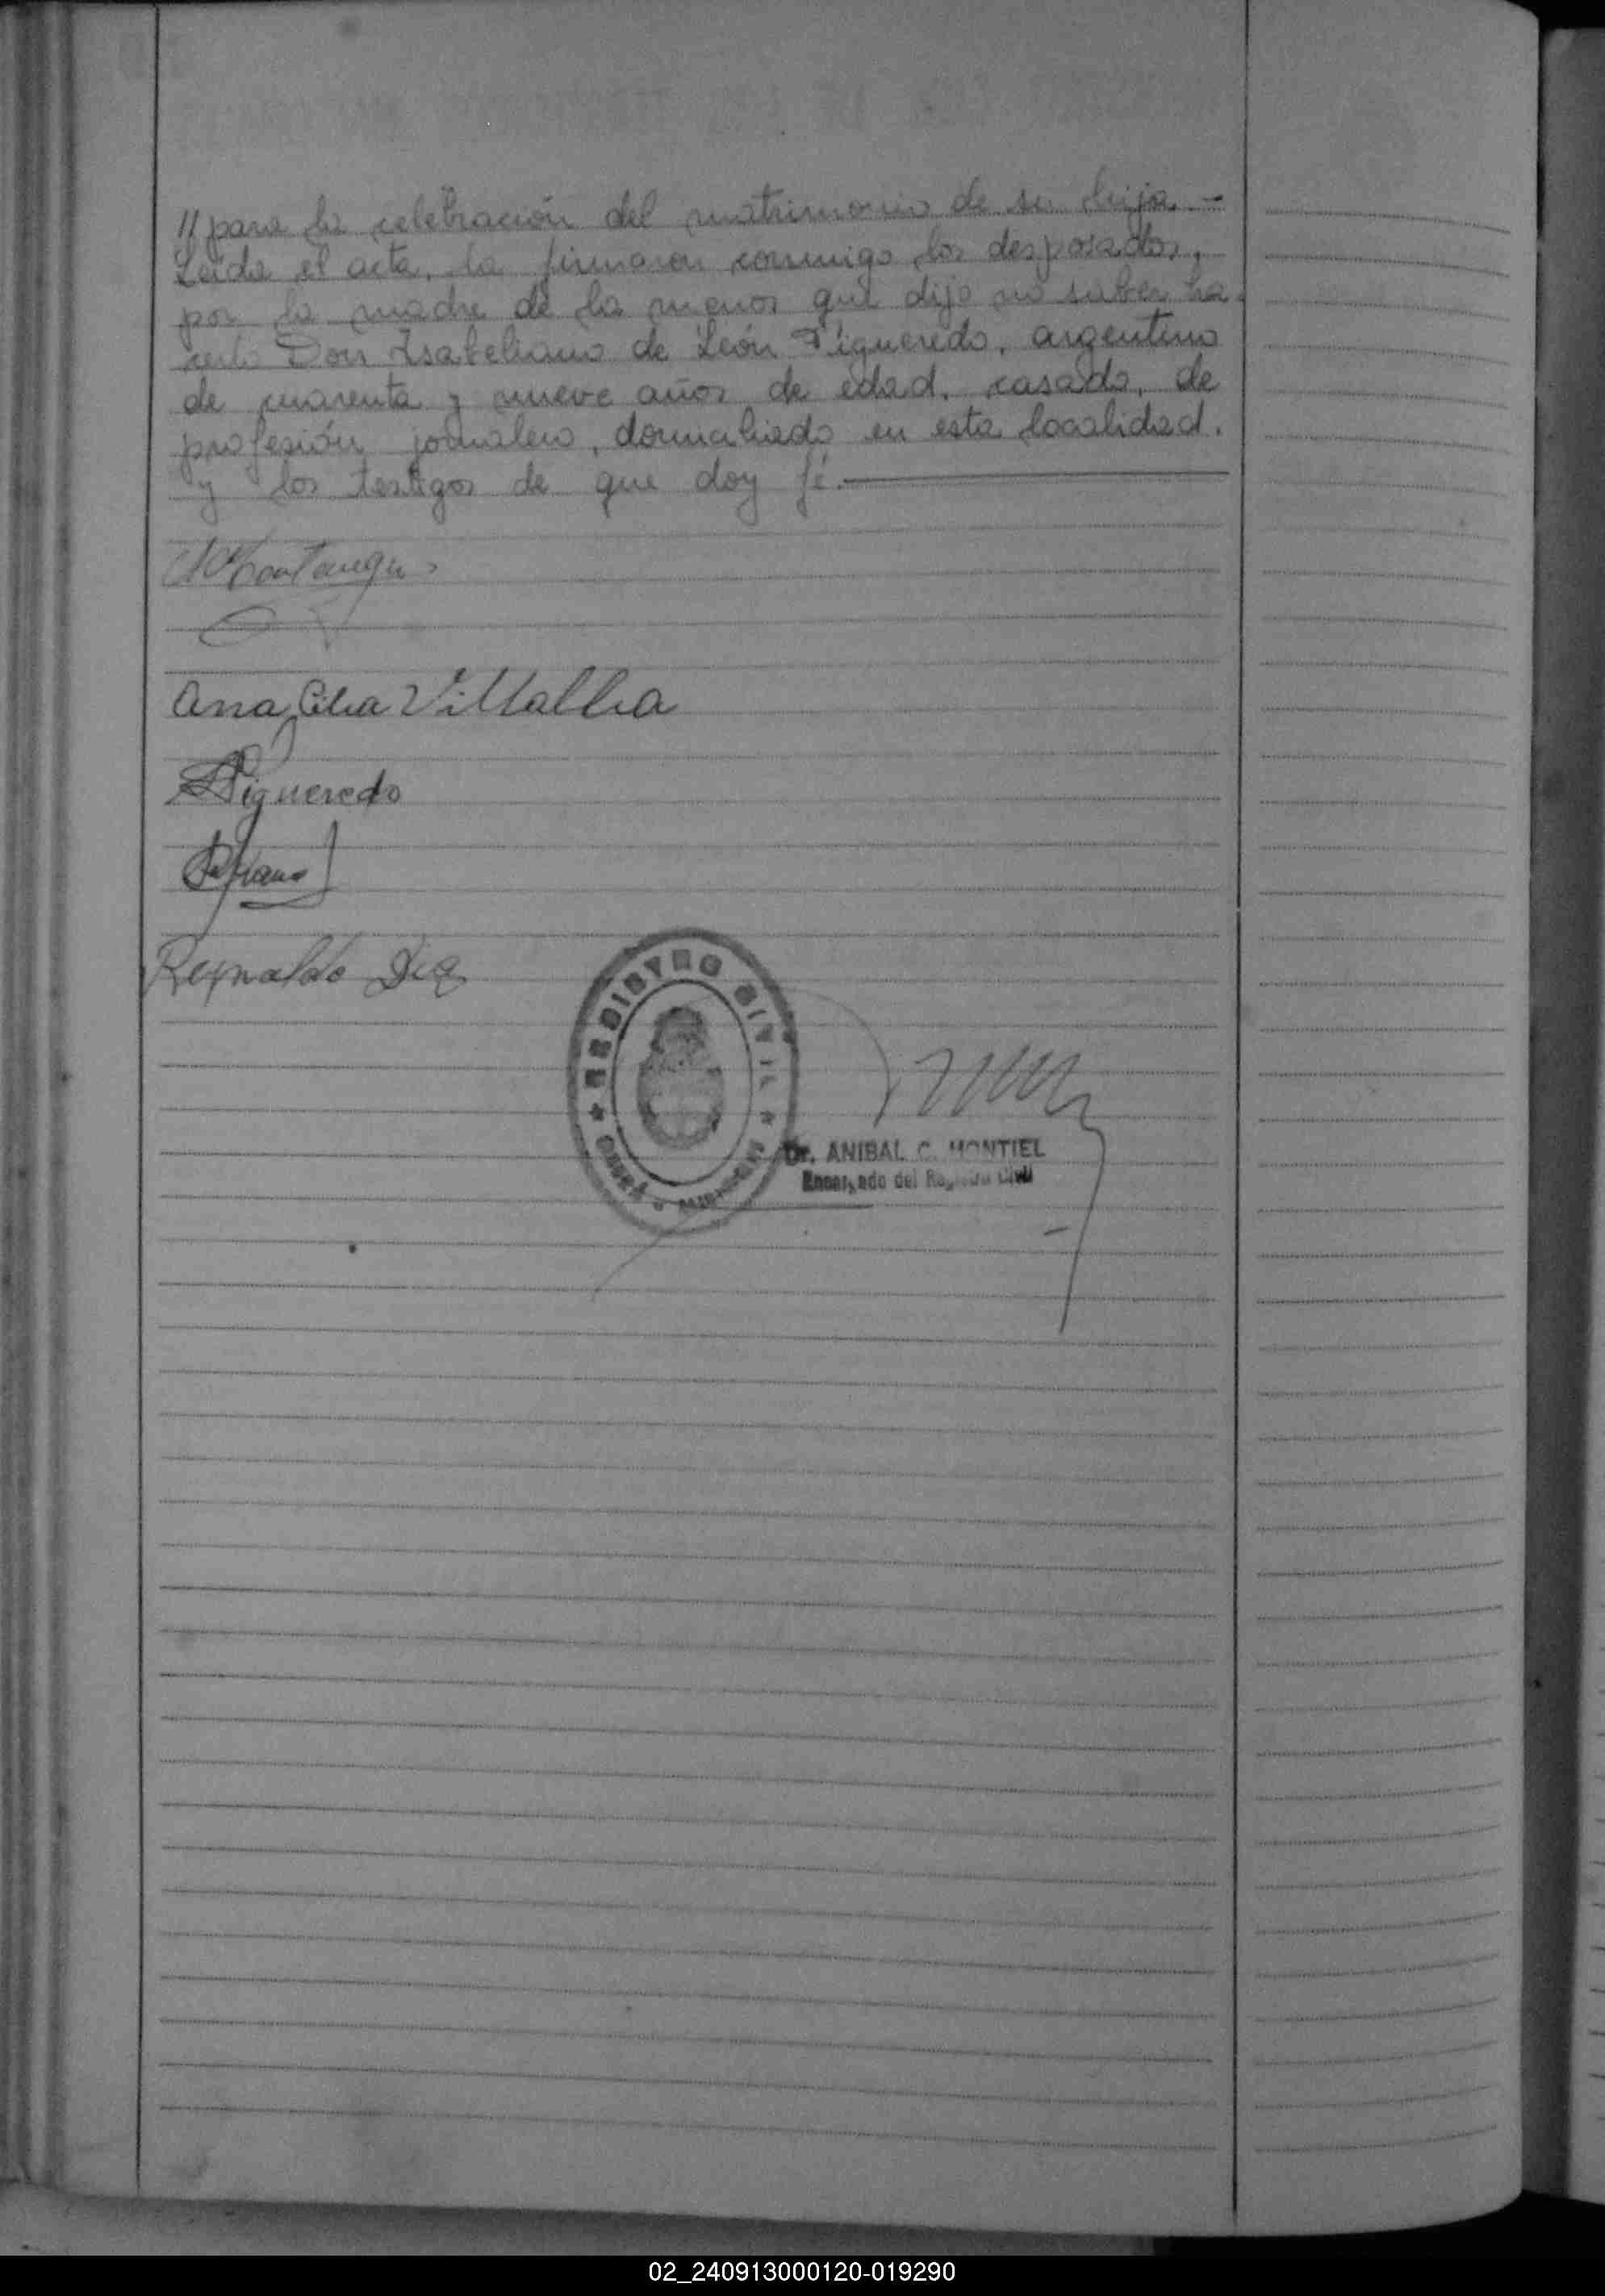 // para la celebración del matrimonio de su hija.-
Leida el acta, la firmaron conmigo los desposados,
por la madre de la menor que dijo no saber ha-
cerlo Don Isabeliano de León Figueredo, argentino
de cuarenta y nueve años de edad, casado, de
profesión jornalero, domiciliado en esta localidad.
y los testigos de que doy fé.
Ana Villalba
Figueredo
Reynaldo
REGISTRO CIVIL
Dr. ANIBAL C. MONTIEL
Encargado del Registro Civil
02_240913000120-019290